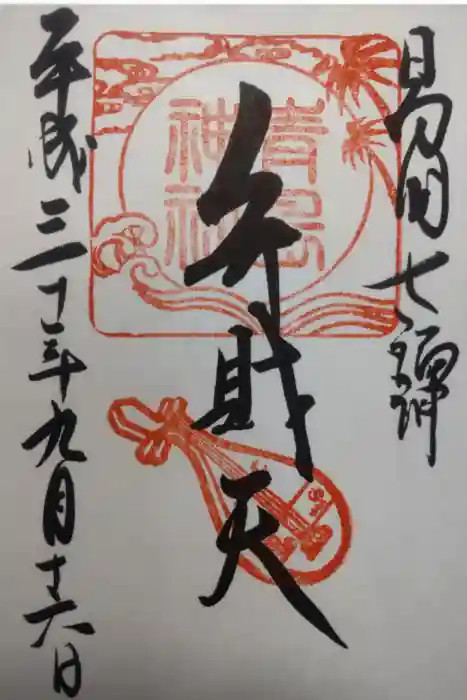 日向国七福神
青島神社
弁財天
平成三十年九月十六日